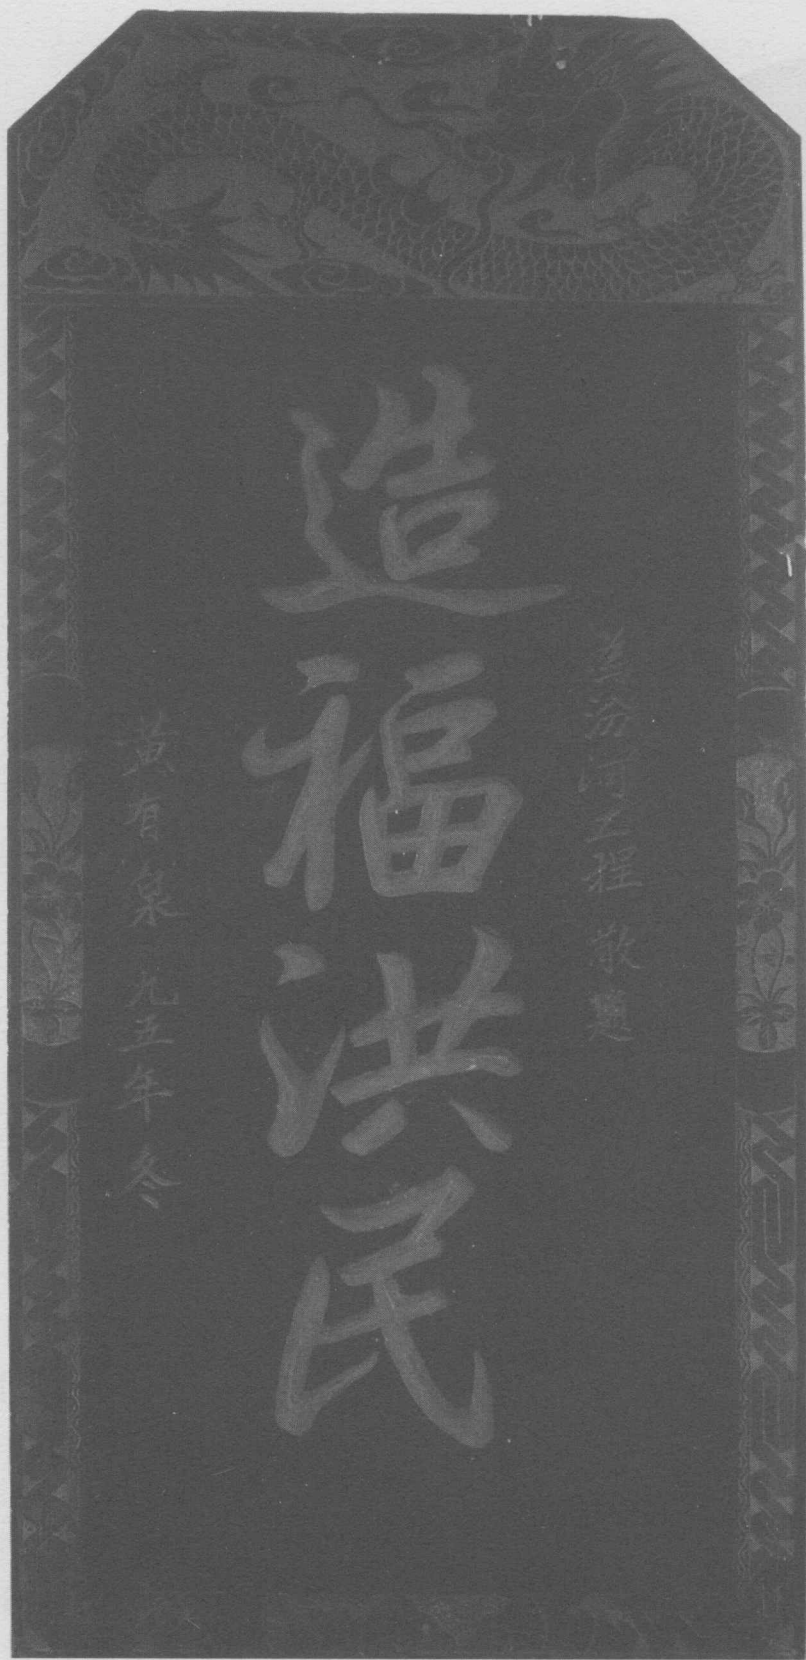 盖洛河工程敬题
造福洪民
黄有泉 九五年冬